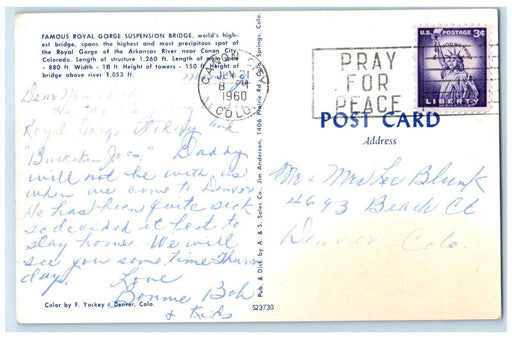 FAMOUS ROYAL GORGE SUSPENSION BRIDGE, world's high-
est bridge, spans the highest and most precipitous spot of
the Royal Gorge of the Arkansas River near Canon City
Colorado. Length of structure 1,260 ft. Length of main span
- 880 ft. Width - 18 ft. Height of towers - 150 ft. Height of
bridge above river 1,053 ft.
Dear Mom
Royal Gorge today and
"Buckskin Joe's." Daddy
will not be with us
when we come to Denver
He has been quite sick
so decided it best to
stay home. We will
see you some time Thurs
day.
Love
Bonnie Bob
& Kids
Color by F. Yockey - Denver, Colo.
S23730
Pub. & Dist. by A. & S. Sales Co., Jim Anderson, 1406 Prairie Rd., Colo. Springs, Colo.
CANON CITY
JUN 21
8 PM
1960
COLO.
PRAY
FOR
PEACE
U.S. POSTAGE 3¢
LIBERTY
POST CARD
Address
Mr & Mrs Lee Blunk
4693 Beach Ct
Denver Colo.